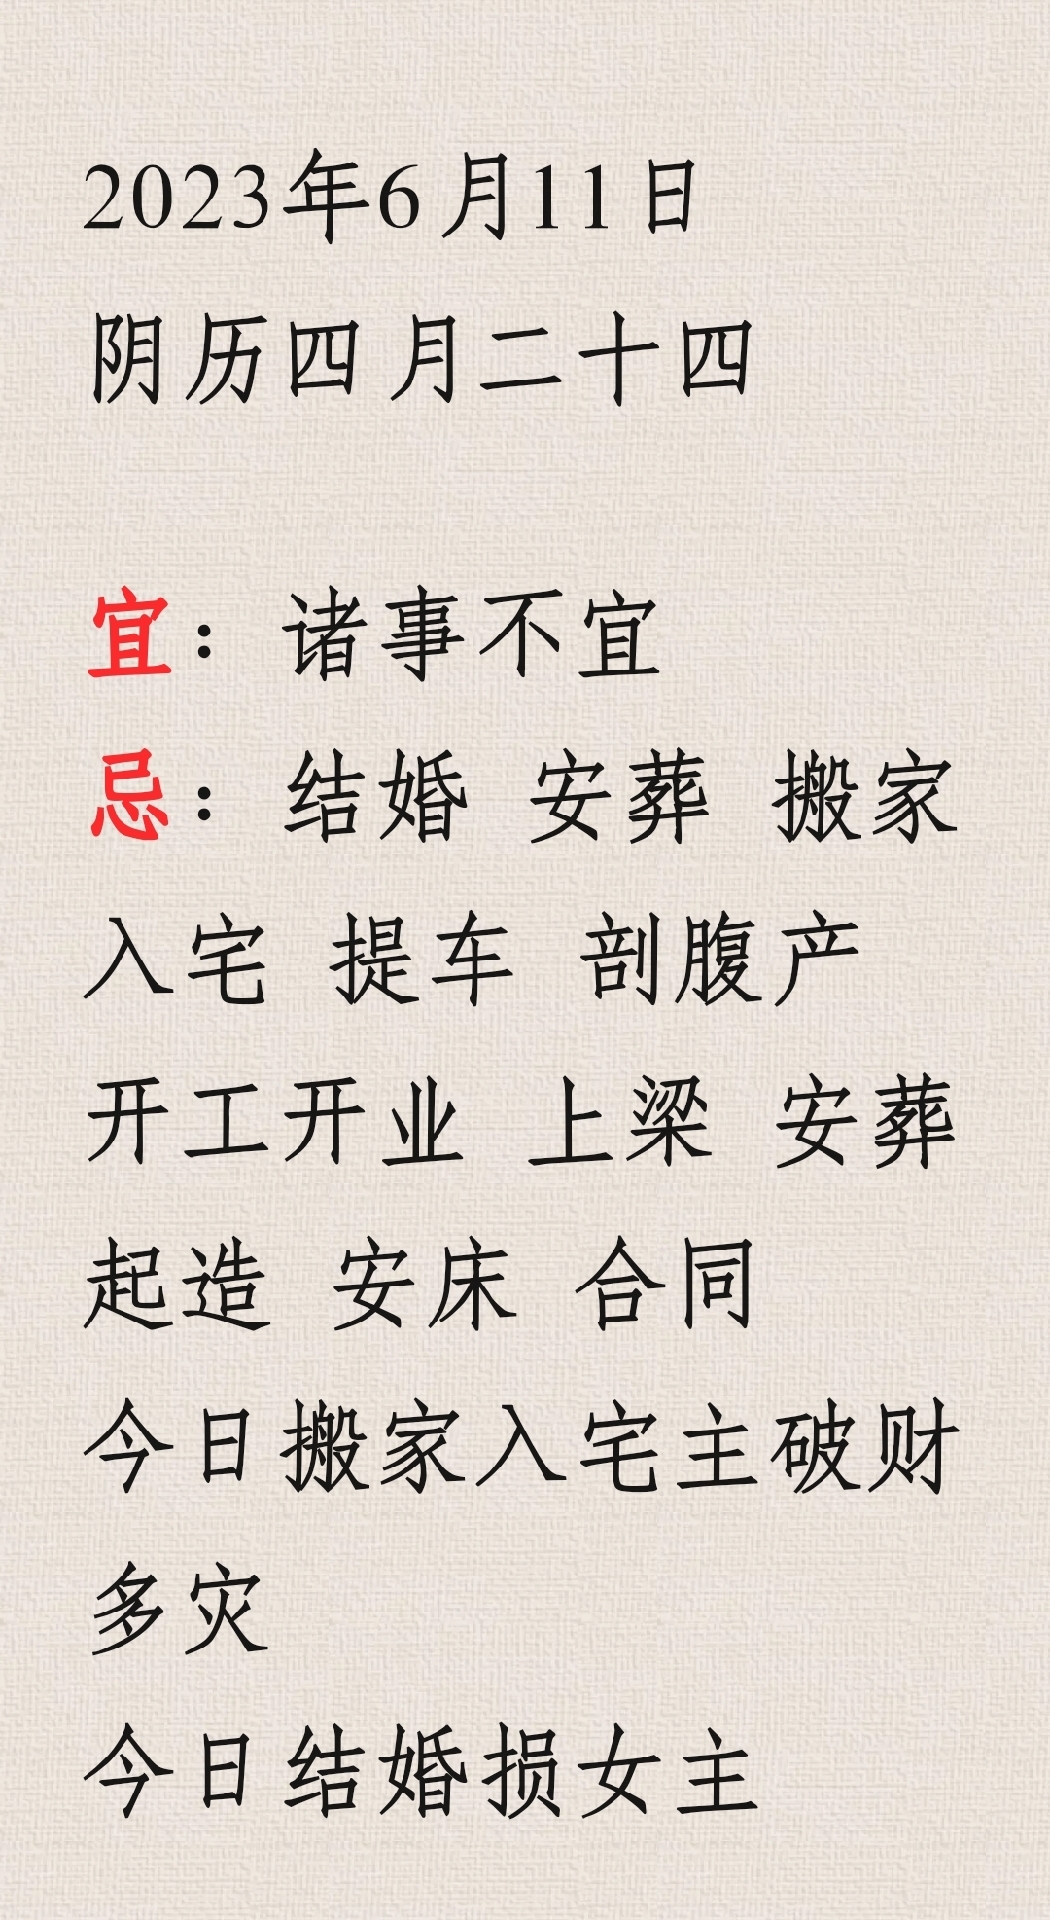 2023年6月11日
阴历四月二十四
宜：诸事不宜
忌：结婚 安葬 搬家
入宅 提车 剖腹产
开工开业 上梁 安葬
起造 安床 合同
今日搬家入宅主破财
多灾
今日结婚损女主